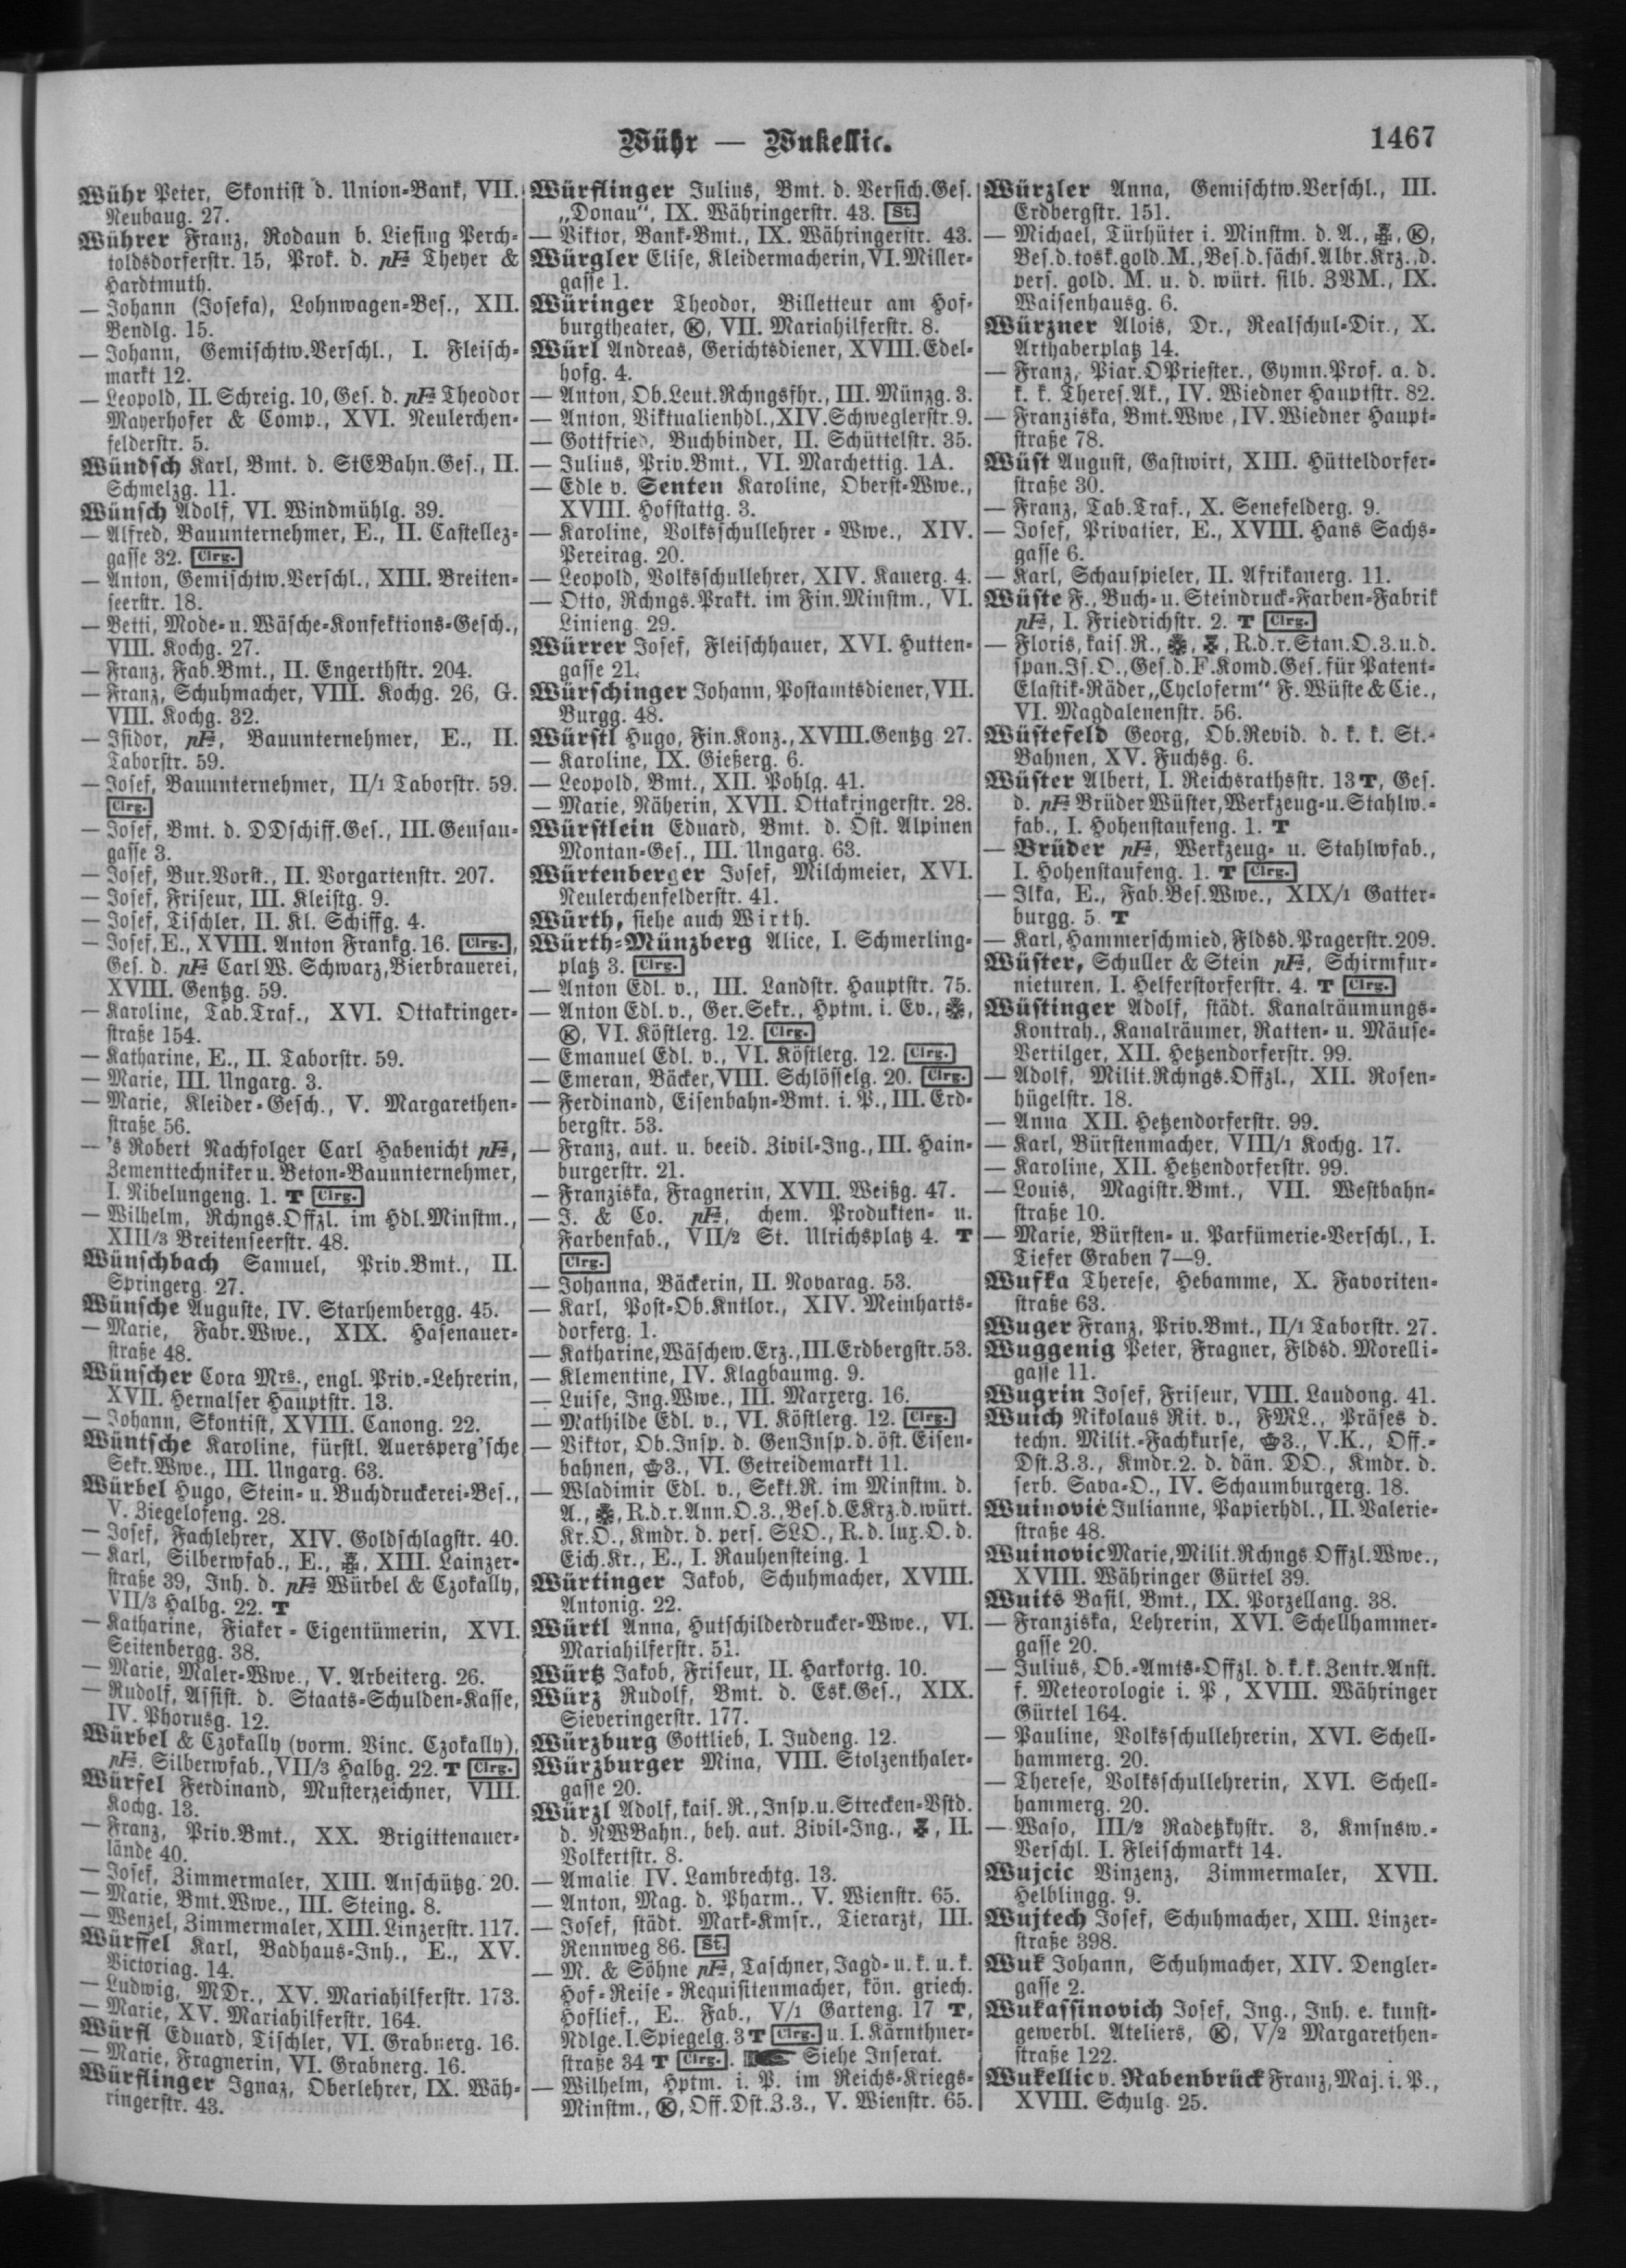 Wühr — Wukellic.
1467
Wühr Peter, Skontist d. Union-Bank, VII.
Neubaug. 27.
Wührer Franz, Rodaun b. Liesing Perch-
toldsdorferstr. 15, Prok. d. pFa Theyer &
Hardtmuth.
— Johann (Josefa), Lohnwagen-Bes., XII.
Bendlg. 15.
— Johann, Gemischtw.Verschl., I. Fleisch-
markt 12.
— Leopold, II. Schreig. 10, Ges. d. pFa Theodor
Mayerhofer & Comp., XVI. Neulerchen-
felderstr. 5.
Wündsch Karl, Bmt. d. StEBahn.Ges., II.
Schmelzg. 11.
Wünsch Adolf, VI. Windmühlg. 39.
— Alfred, Bauunternehmer, E., II. Castellez-
gasse 32. Clrg.
— Anton, Gemischtw.Verschl., XIII. Breiten-
seerstr. 18.
— Betti, Mode- u. Wäsche-Konfektions-Gesch.,
VIII. Kochg. 27.
— Franz, Fab.Bmt., II. Engerthstr. 204.
— Franz, Schuhmacher, VIII. Kochg. 26, G.
VIII. Kochg. 32.
— Isidor, pFa, Bauunternehmer, E., II.
Taborstr. 59.
— Josef, Bauunternehmer, II/1 Taborstr. 59.
Clrg.
— Josef, Bmt. d. DDschiff.Ges., III. Geusau-
gasse 3.
— Josef, Bur.Vorst., II. Vorgartenstr. 207.
— Josef, Friseur, III. Kleistg. 9.
— Josef, Tischler, II. Kl. Schiffg. 4.
— Josef, E., XVIII. Anton Frankg. 16. Clrg.,
Ges. d. pFa Carl W. Schwarz, Bierbrauerei,
XVIII. Gentzg. 59.
— Karoline, Tab.Traf., XVI. Ottakringer-
straße 154.
— Katharine, E., II. Taborstr. 59.
— Marie, III. Ungarg. 3.
— Marie, Kleider-Gesch., V. Margarethen-
straße 56.
— 's Robert Nachfolger Carl Habenicht pFa,
Zementtechniker u. Beton-Bauunternehmer,
I. Nibelungeng. 1. T Clrg.
— Wilhelm, Rchngs.Offzl. im Hdl.Minstm.,
XIII/3 Breitenseerstr. 48.
Wünschbach Samuel, Priv.Bmt., II.
Springerg. 27.
Wünsche Auguste, IV. Starhembergg. 45.
— Marie, Fabr.Wwe., XIX. Hasenauer-
straße 48.
Wünscher Cora Mrs., engl. Priv.-Lehrerin,
XVII. Hernalser Hauptstr. 13.
— Johann, Skontist, XVIII. Canong. 22.
Wüntsche Karoline, fürstl. Auersperg'sche
Sekr.Wwe., III. Ungarg. 63.
Würbel Hugo, Stein- u. Buchdruckerei-Bes.,
V. Ziegelofeng. 28.
— Josef, Fachlehrer, XIV. Goldschlagstr. 40.
— Karl, Silberwfab., E., XIII. Lainzer-
straße 39, Inh. d. pFa Würbel & Czokally,
VII/3 Halbg. 22. T
— Katharine, Fiaker-Eigentümerin, XVI.
Seitenbergg. 38.
— Marie, Maler-Wwe., V. Arbeiterg. 26.
— Rudolf, Assist. d. Staats-Schulden-Kasse,
IV. Phorusg. 12.
Würbel & Czokally (vorm. Vinc. Czokally),
pFa, Silberwfab., VII/3 Halbg. 22. T Clrg.
Würfel Ferdinand, Musterzeichner, VIII.
Kochg. 13.
— Franz, Priv.Bmt., XX. Brigittenauer-
lände 40.
— Josef, Zimmermaler, XIII. Anschützg. 20.
— Marie, Bmt.Wwe., III. Steing. 8.
— Wenzel, Zimmermaler, XIII. Linzerstr. 117.
Würffel Karl, Badhaus-Inh., E., XV.
Victoriag. 14.
— Ludwig, MDr., XV. Mariahilferstr. 173.
— Marie, XV. Mariahilferstr. 164.
Würfl Eduard, Tischler, VI. Grabnerg. 16.
— Marie, Fragnerin, VI. Grabnerg. 16.
Würflinger Ignaz, Oberlehrer, IX. Wäh-
ringerstr. 43.
Würflinger Julius, Bmt. d. Versich.Ges.
„Donau“, IX. Währingerstr. 43. St.
— Viktor, Bank-Bmt., IX. Währingerstr. 43.
Würgler Elise, Kleidermacherin, VI. Miller-
gasse 1.
Würinger Theodor, Billetteur am Hof-
burgtheater, Ⓚ, VII. Mariahilferstr. 8.
Würl Andreas, Gerichtsdiener, XVIII. Edel-
hofg. 4.
— Anton, Ob.Leut.Rchngsfhr., III. Münzg. 3.
— Anton, Viktualienhdl., XIV. Schweglerstr. 9.
— Gottfried, Buchbinder, II. Schüttelstr. 35.
— Julius, Priv.Bmt., VI. Marchettig. 1A.
— Edle v. Senten Karoline, Oberst-Wwe.,
XVIII. Hofstattg. 3.
— Karoline, Volksschullehrer-Wwe., XIV.
Pereirag. 20.
— Leopold, Volksschullehrer, XIV. Kauerg. 4.
— Otto, Rchngs.Prakt. im Fin.Minstm., VI.
Linieng. 29.
Würrer Josef, Fleischhauer, XVI. Hutten-
gasse 21.
Würschinger Johann, Postamtsdiener, VII.
Burgg. 48.
Würstl Hugo, Fin.Konz., XVIII. Gentzg. 27.
— Karoline, IX. Gießerg. 6.
— Leopold, Bmt., XII. Pohlg. 41.
— Marie, Näherin, XVII. Ottakringerstr. 28.
Würstlein Eduard, Bmt. d. Öst. Alpinen
Montan-Ges., III. Ungarg. 63.
Würtenberger Josef, Milchmeier, XVI.
Neulerchenfelderstr. 41.
Würth, siehe auch Wirth.
Würth-Münzberg Alice, I. Schmerling-
platz 3. Clrg.
— Anton Edl. v., III. Landstr. Hauptstr. 75.
— Anton Edl. v., Ger.Sekr., Hptm. i. Ev.,
Ⓚ, VI. Köstlerg. 12. Clrg.
— Emanuel Edl. v., VI. Köstlerg. 12. Clrg.
— Emeran, Bäcker, VIII. Schlösselg. 20. Clrg.
— Ferdinand, Eisenbahn-Bmt. i. P., III. Erd-
bergstr. 53.
— Franz, aut. u. beeid. Zivil-Ing., III. Hain-
burgerstr. 21.
— Franziska, Fragnerin, XVII. Weißg. 47.
— J. & Co. pFa, chem. Produkten- u.
Farbenfab., VII/2 St. Ulrichsplatz 4. T
Clrg.
— Johanna, Bäckerin, II. Novarag. 53.
— Karl, Post-Ob.Kntlor., XIV. Meinharts-
dorferg. 1.
— Katharine, Wäschew.Erz., III. Erdbergstr. 53.
— Klementine, IV. Klagbaumg. 9.
— Luise, Ing.Wwe., III. Marxerg. 16.
— Mathilde Edl. v., VI. Köstlerg. 12. Clrg.
— Viktor, Ob.Insp. d. GenInsp. d. öst. Eisen-
bahnen, 3., VI. Getreidemarkt 11.
— Wladimir Edl. v., Sekt.R. im Minstm. d.
A., R.d.r.Ann.O.3., Bes.d.EKrz.d.würt.
Kr.O., Kmdr. d. pers. SLO., R. d. lux.O. d.
Eich.Kr., E., I. Rauhensteing. 1
Würtinger Jakob, Schuhmacher, XVIII.
Antonig. 22.
Würtl Anna, Hutschilderdrucker-Wwe., VI.
Mariahilferstr. 51.
Würtz Jakob, Friseur, II. Harkortg. 10.
Würz Rudolf, Bmt. d. Esk.Ges., XIX.
Sieveringerstr. 177.
Würzburg Gottlieb, I. Judeng. 12.
Würzburger Mina, VIII. Stolzenthaler-
gasse 20.
Würzl Adolf, kais. R., Insp. u. Strecken-Vstd.
d. NWBahn., beh. aut. Zivil-Ing., II.
Volkertstr. 8.
— Amalie IV. Lambrechtg. 13.
— Anton, Mag. d. Pharm., V. Wienstr. 65.
— Josef, städt. Mark-Kmsr., Tierarzt, III.
Rennweg 86. St.
— M. & Söhne pFa, Taschner, Jagd- u. k. u. k.
Hof-Reise-Requisitenmacher, kön. griech.
Hoflief., E. Fab., V/1 Garteng. 17 T,
Ndlge. I. Spiegelg. 3 T Clrg. u. I. Kärnthner-
straße 34 T Clrg. Siehe Inserat.
— Wilhelm, Hptm. i. P. im Reichs-Kriegs-
Minstm., Ⓚ, Off.Dst.Z.3., V. Wienstr. 65.
Würzler Anna, Gemischtw.Verschl., III.
Erdbergstr. 151.
— Michael, Türhüter i. Minstm. d. A., Ⓚ,
Bes.d.tosk.gold.M., Bes.d.sächs.Albr.Krz., d.
pers. gold. M. u. d. würt. silb. ZVM., IX.
Waisenhausg. 6.
Würzner Alois, Dr., Realschul-Dir., X.
Arthaberplatz 14.
— Franz, Piar.OPriester., Gymn.Prof. a. d.
k. k. Theres.Ak., IV. Wiedner Hauptstr. 82.
— Franziska, Bmt.Wwe., IV. Wiedner Haupt-
straße 78.
Wüst August, Gastwirt, XIII. Hütteldorfer-
straße 30.
— Franz, Tab.Traf., X. Senefelderg. 9.
— Josef, Privatier, E., XVIII. Hans Sachs-
gasse 6.
— Karl, Schauspieler, II. Afrikanerg. 11.
Wüste F., Buch- u. Steindruck-Farben-Fabrik
pFa, I. Friedrichstr. 2. T Clrg.
— Floris, kais. R., R.d.r.Stan.O.3.u.d.
span.Is.O., Ges.d.F.Komd.Ges. für Patent-
Elastik-Räder „Cycloferm“ F. Wüste & Cie.,
VI. Magdalenenstr. 56.
Wüstefeld Georg, Ob.Revid. d. k. k. St.-
Bahnen, XV. Fuchsg. 6.
Wüster Albert, I. Reichsrathsstr. 13 T, Ges.
d. pFa Brüder Wüster, Werkzeug- u. Stahlw.-
fab., I. Hohenstaufeng. 1. T
— Brüder pFa, Werkzeug- u. Stahlwfab.,
I. Hohenstaufeng. 1. T Clrg.
— Ilka, E., Fab.Bes.Wwe., XIX/1 Gatter-
burgg. 5. T
— Karl, Hammerschmied, Fldsd. Pragerstr. 209.
Wüster, Schuller & Stein pFa, Schirmfur-
nieturen, I. Helferstorferstr. 4. T Clrg.
Wüstinger Adolf, städt. Kanalräumungs-
Kontrah., Kanalräumer, Ratten- u. Mäuse-
Vertilger, XII. Hetzendorferstr. 99.
— Adolf, Milit.Rchngs.Offzl., XII. Rosen-
hügelstr. 18.
— Anna XII. Hetzendorferstr. 99.
— Karl, Bürstenmacher, VIII/1 Kochg. 17.
— Karoline, XII. Hetzendorferstr. 99.
— Louis, Magistr.Bmt., VII. Westbahn-
straße 10.
— Marie, Bürsten- u. Parfümerie-Verschl., I.
Tiefer Graben 7—9.
Wufka Therese, Hebamme, X. Favoriten-
straße 63.
Wuger Franz, Priv.Bmt., II/1 Taborstr. 27.
Wuggenig Peter, Fragner, Fldsd. Morelli-
gasse 11.
Wugrin Josef, Friseur, VIII. Laudong. 41.
Wuich Nikolaus Rit. v., FML., Präses d.
techn. Milit.-Fachkurse, 3., V.K., Off.-
Dst.Z.3., Kmdr.2. d. dän. DO., Kmdr. d.
serb. Sava-O., IV. Schaumburgerg. 18.
Wuinović Julianne, Papierhdl., II. Valerie-
straße 48.
Wuinovic Marie, Milit.Rchngs.Offzl.Wwe.,
XVIII. Währinger Gürtel 39.
Wuits Basil, Bmt., IX. Porzellang. 38.
— Franziska, Lehrerin, XVI. Schellhammer-
gasse 20.
— Julius, Ob.-Amts-Offzl. d. k. k. Zentr.Anst.
f. Meteorologie i. P., XVIII. Währinger
Gürtel 164.
— Pauline, Volksschullehrerin, XVI. Schell-
hammerg. 20.
— Therese, Volksschullehrerin, XVI. Schell-
hammerg. 20.
— Waso, III/2 Radetzkystr. 3, Kmsnsw.-
Verschl. I. Fleischmarkt 14.
Wujcic Vinzenz, Zimmermaler, XVII.
Helblingg. 9.
Wujtech Josef, Schuhmacher, XIII. Linzer-
straße 398.
Wuk Johann, Schuhmacher, XIV. Dengler-
gasse 2.
Wukassinovich Josef, Ing., Inh. e. kunst-
gewerbl. Ateliers, Ⓚ, V/2 Margarethen-
straße 122.
Wukellic v. Rabenbrück Franz, Maj. i. P.,
XVIII. Schulg. 25.